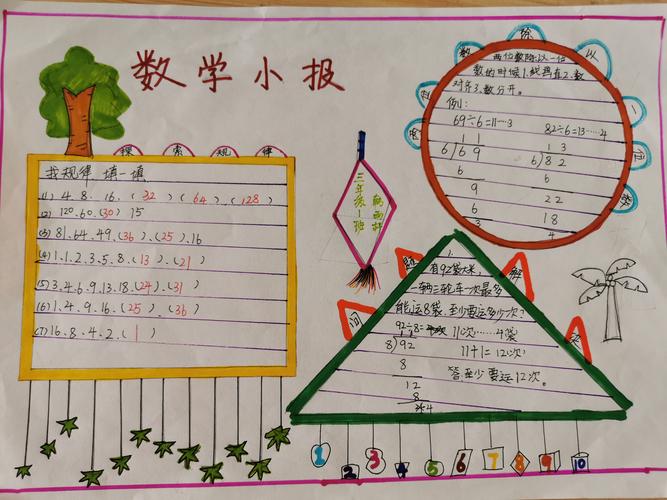 数学小报
探索规律
找规律 填一填
(1) 4、8、16、(32)、(64)、(128)
(2) 120、60、(30) 15
(3) 81、64、49、(36)、(25)、16
(4) 1、1、2、3、5、8、(13)、(21)
(5) 3、4、6、9、13、18、(24)、(31)
(6) 1、4、9、16、(25)、(36)
(7) 16、8、4、2、(1)
三年级1班
除以一位数
两位数除以一位
数的时候1、找竖直2、数
对齐3、数分开。
例:
69÷6=11…3 82÷6=13……4
1 1 1 3
6 6 9 6 8 2
6 6
9 2 2
6 1 8
3 4
问题解决
1.
有92袋大米,
一辆三轮车一次最多
能运8袋,至少要运多少次?
92÷8= 11次……4袋
8 92 11+1=12(次)
8 答:至少要运12次。
12
8
4
1 2 3 4 5 6 7 8 9 10